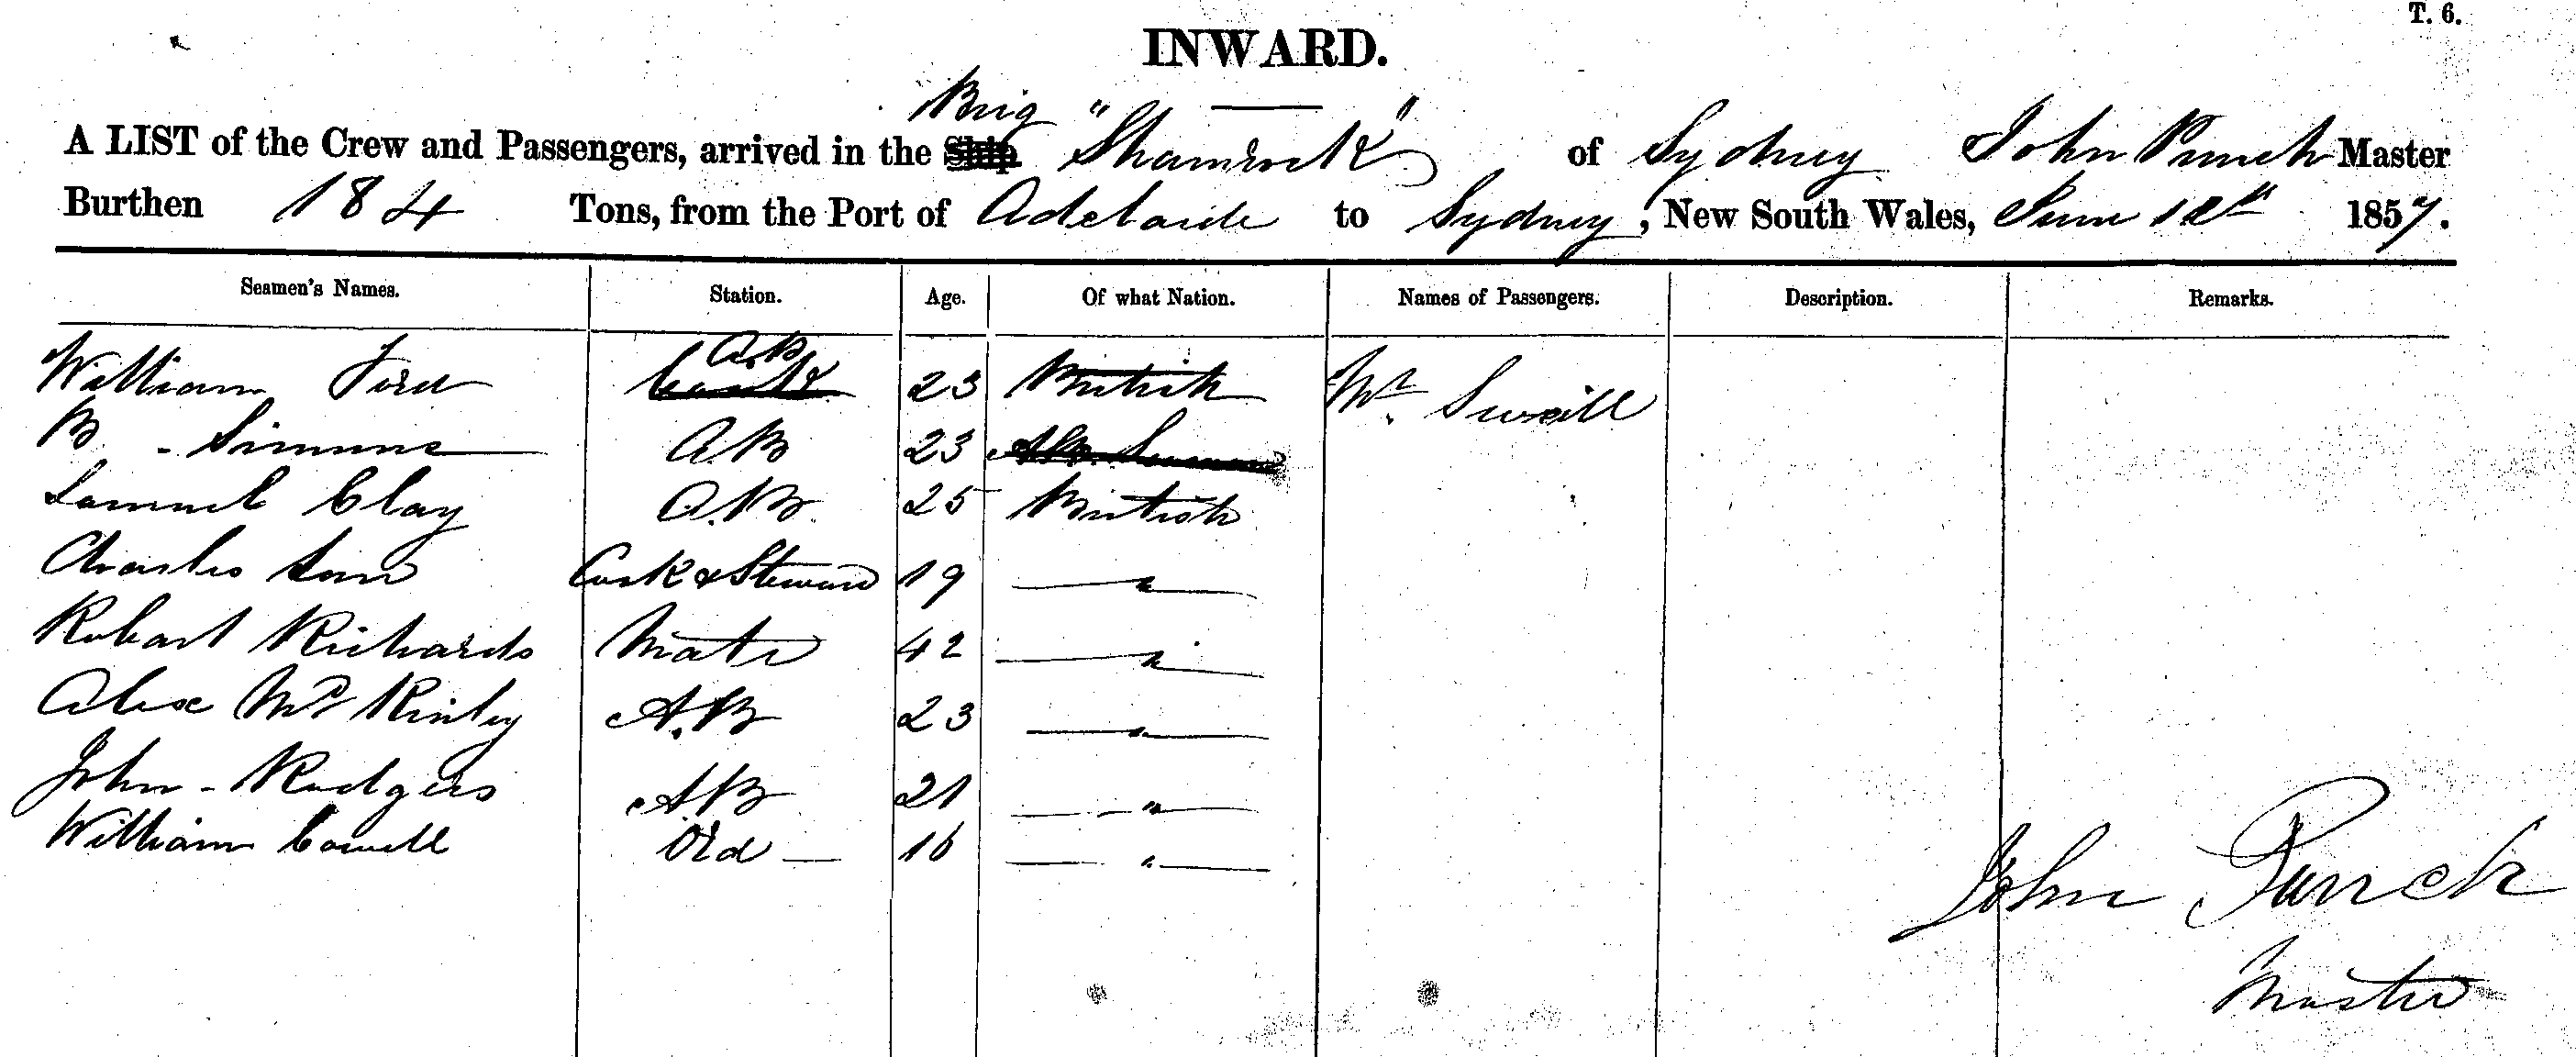 T. 6.
INWARD.
Brig
A LIST of the Crew and Passengers, arrived in the Ship "Shamrock" of Sydney John Punch Master
Burthen 184 Tons, from the Port of Adelaide to Sydney, New South Wales, June 12th 1857.
Seamen's Names. Station. Age. Of what Nation. Names of Passengers. Description. Remarks.
A.B
William Ford Cook 23 British Mr.
B. - Simmons A.B 23
Samuel Clay A.B. 25 British
Charles Cook & Steward 19 — " —
Robert Richards Mate 42 — " —
Alex McKinley A.B 23 — " —
John - Rodgers A.B 21 — " —
William Cowell Ord — 16 — " —
John Punch
Master